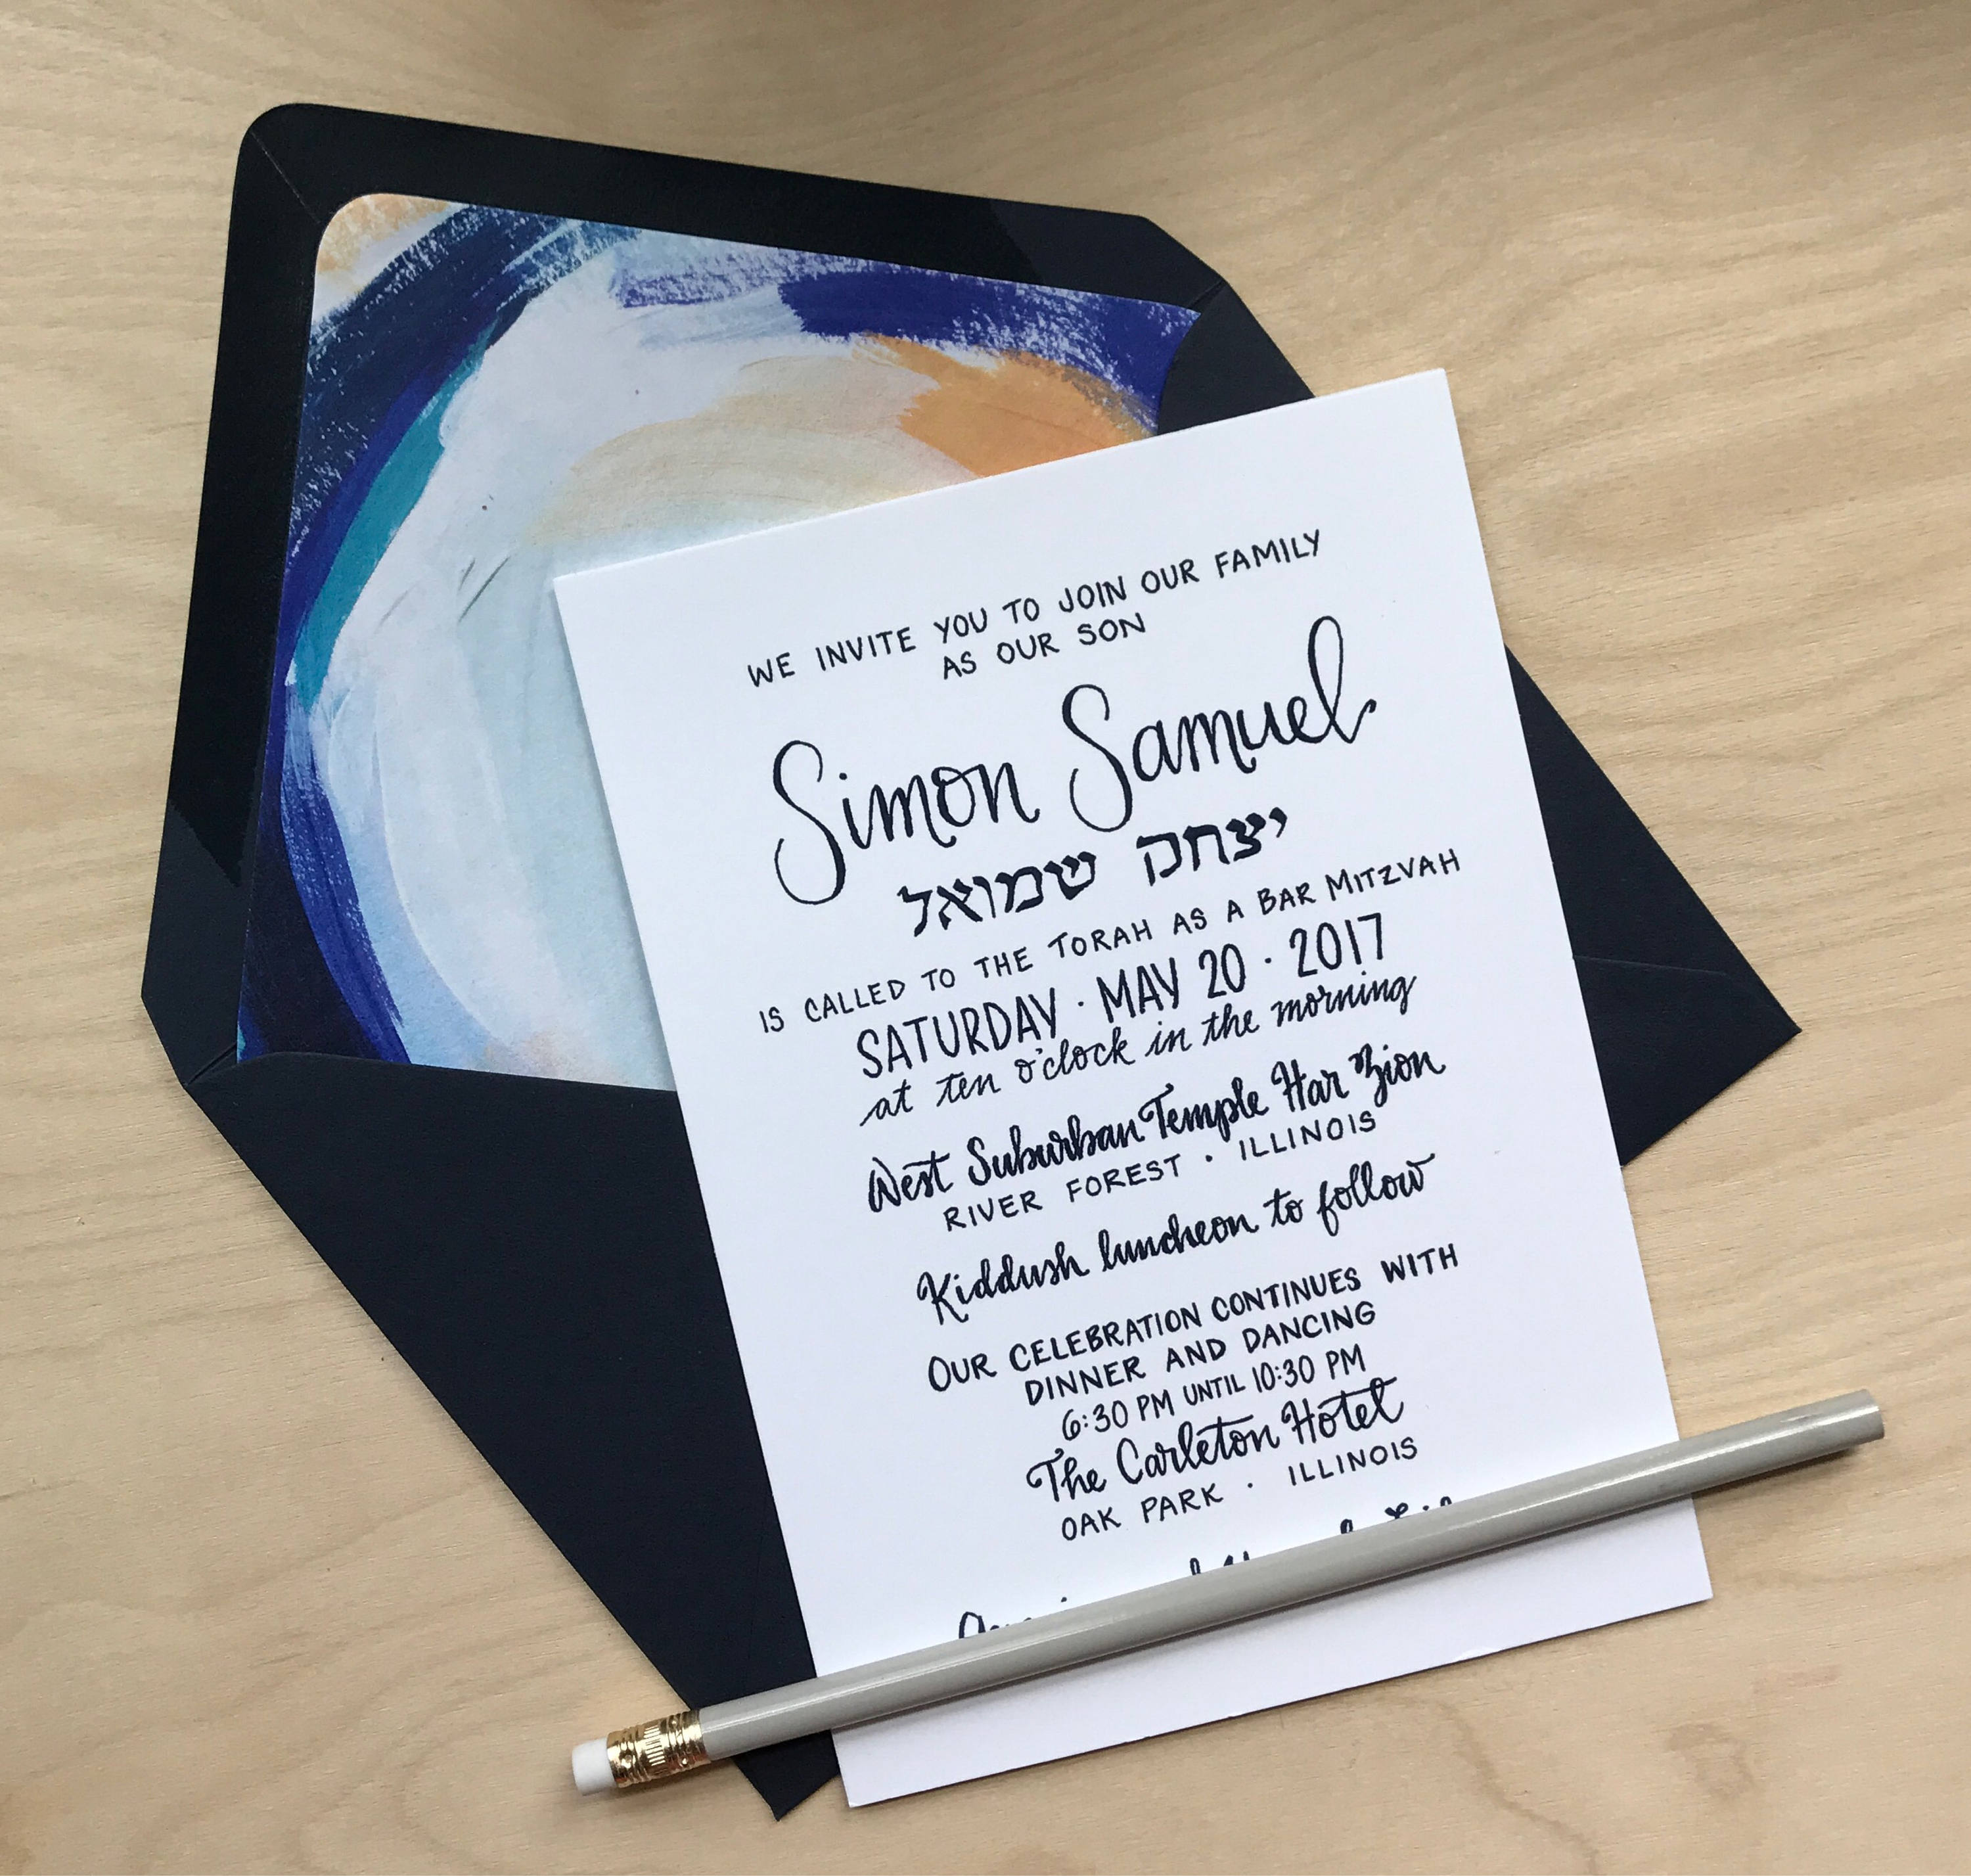 WE INVITE YOU TO JOIN OUR FAMILY
AS OUR SON
Simon Samuel
יצחק שמואל
IS CALLED TO THE TORAH AS A BAR MITZVAH
SATURDAY · MAY 20 · 2017
at ten o'clock in the morning
West Suburban Temple Har Zion
RIVER FOREST · ILLINOIS
Kiddush luncheon to follow
OUR CELEBRATION CONTINUES WITH
DINNER AND DANCING
6:30 PM UNTIL 10:30 PM
The Carleton Hotel
OAK PARK · ILLINOIS